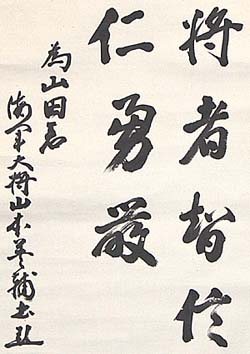 将者智信
仁勇嚴
為山田君
海軍大将山本英輔書